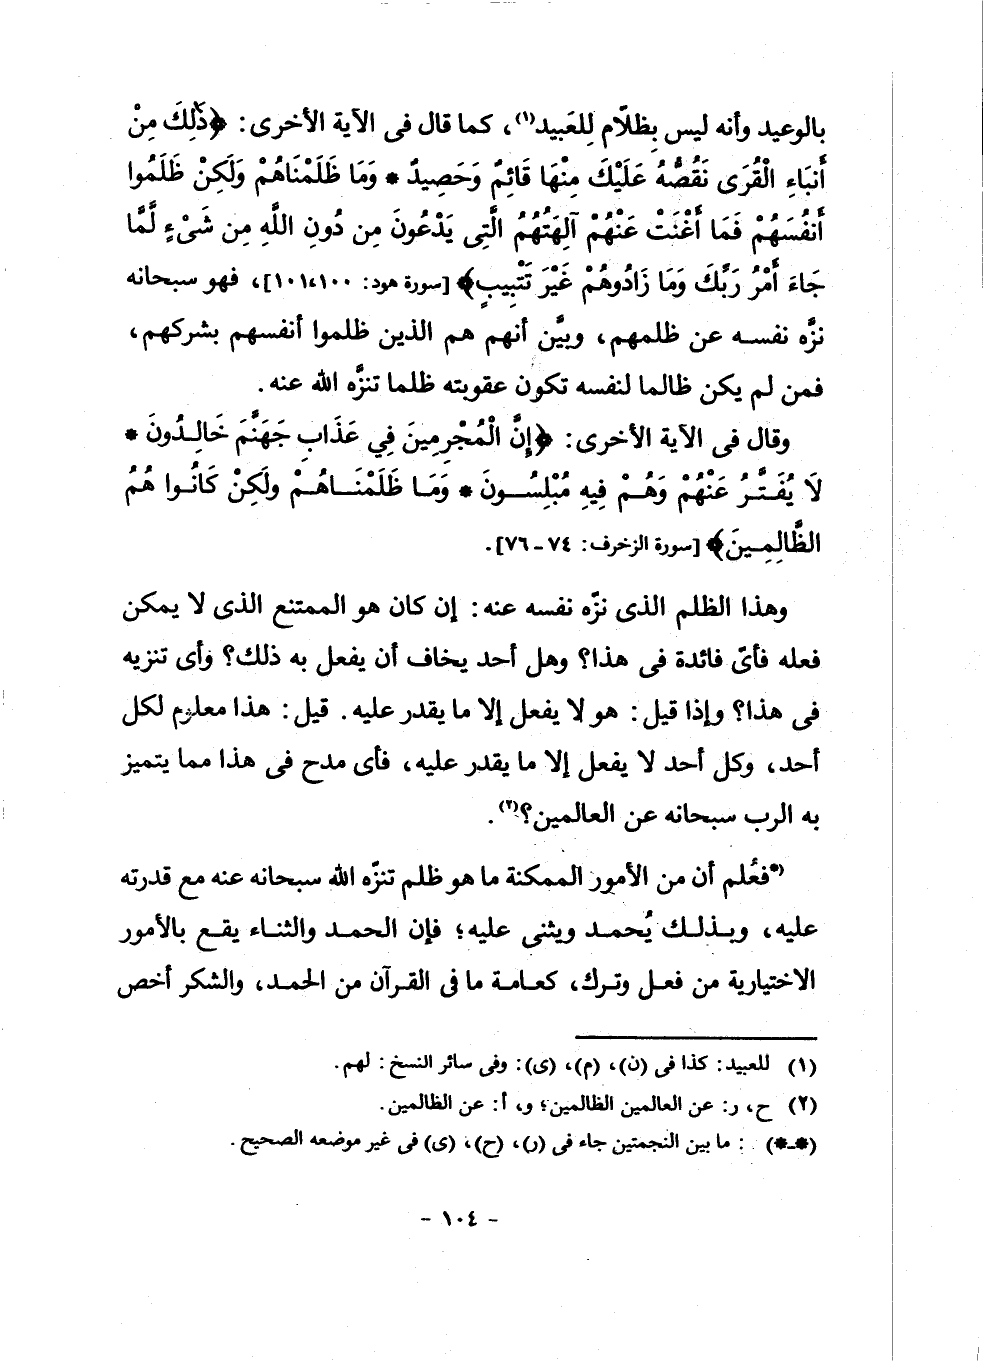 بالوعيد وأنه ليس بِظلّام لِلعَبيد(١)، كما قال فى الآية الأخرى: ﴿ذَٰلِكَ مِنْ
أَنبَاءِ الْقُرَى نَقُصُّهُ عَلَيْكَ مِنْهَا قَائِمٌ وَحَصِيدٌ * وَمَا ظَلَمْنَاهُمْ وَلَكِنْ ظَلَمُوا
أَنفُسَهُمْ فَمَا أَغْنَتْ عَنْهُمْ آلِهَتُهُمُ الَّتِى يَدْعُونَ مِن دُونِ اللَّهِ مِن شَىْءٍ لَّمَّا
جَاءَ أَمْرُ رَبِّكَ وَمَا زَادُوهُمْ غَيْرَ تَتْبِيبٍ﴾ [سورة هود: ١٠١،١٠٠]، فهو سبحانه
نزَّه نفسه عن ظلمهم، وبيَّن أنهم هم الذين ظلموا أنفسهم بشركهم،
فمن لم يكن ظالما لنفسه تكون عقوبته ظلما تنزَّه الله عنه.
وقال فى الآية الأخرى: ﴿إِنَّ الْمُجْرِمِينَ فِي عَذَابِ جَهَنَّمَ خَالِدُونَ *
لَا يُفَتَّرُ عَنْهُمْ وَهُمْ فِيهِ مُبْلِسُونَ * وَمَا ظَلَمْنَاهُمْ ولَكِنْ كَانُوا هُمُ
الظَّالِمِينَ﴾ [سورة الزخرف: ٧٤ - ٧٦].
وهذا الظلم الذى نزّه نفسه عنه: إن كان هو الممتنع الذى لا يمكن
فعله فأىّ فائدة فى هذا؟ وهل أحد يخاف أن يفعل به ذلك؟ وأى تنزيه
فى هذا؟ وإذا قيل: هو لا يفعل إلا ما يقدر عليه. قيل: هذا معلوم لكل
أحد، وكل أحد لا يفعل إلا ما يقدر عليه، فأى مدح فى هذا مما يتميز
به الرب سبحانه عن العالمين؟(٢).
(*فعُلم أن من الأمور الممكنة ما هو ظلم تنزّه الله سبحانه عنه مع قدرته
عليه، وبذلك يُحمد ويثنى عليه؛ فإن الحمد والثناء يقع بالأمور
الاختيارية من فعل وترك، كعامة ما فى القرآن من الحمد، والشكر أخص
(١) للعبيد: كذا فى (ن)، (م)، (ى): وفى سائر النسخ: لهم.
(٢) ح، ر: عن العالمين الظالمين؛ و، أ: عن الظالمين.
(*-*) : ما بين النجمتين جاء فى (ر)، (ح)، (ى) فى غير موضعه الصحيح.
- ١٠٤ -